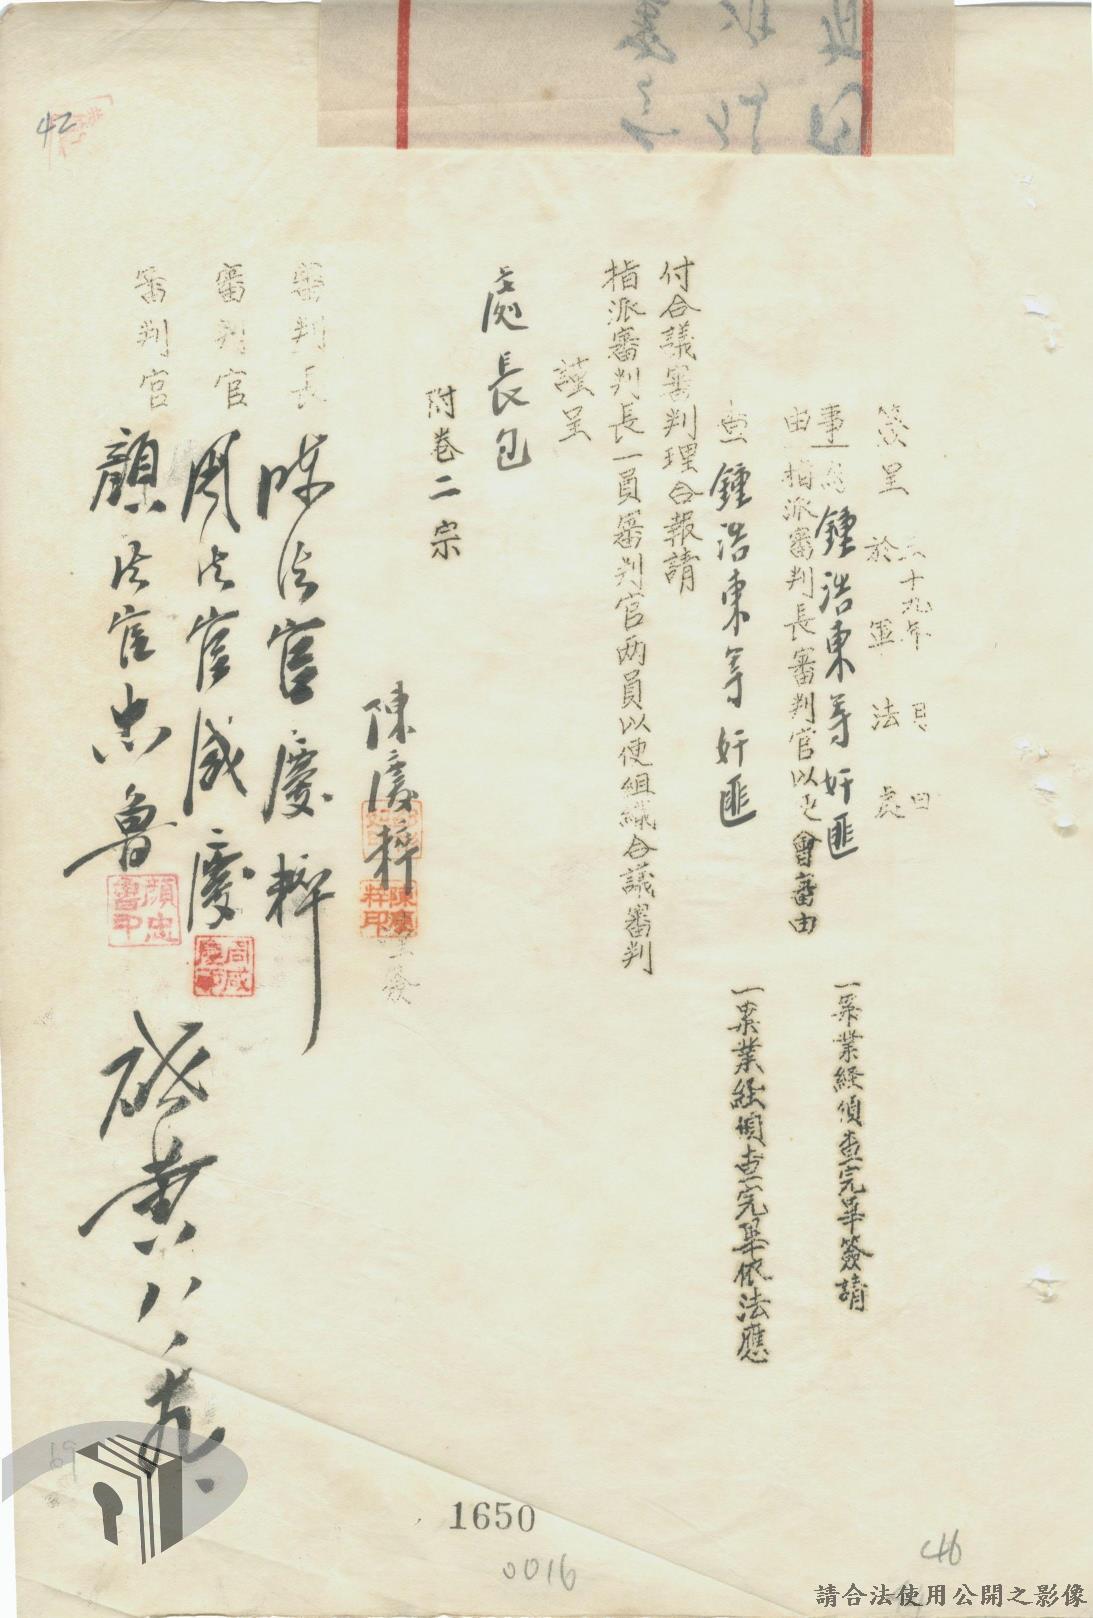 簽呈 三十九年 月 日
於軍法處
事由 為鍾浩東等奸匪一案業經偵查完畢簽請
指派審判長審判官以便會審由
一查鍾浩東等奸匪一案業經偵查完畢依法應
付合議審判理合報請
指派審判長一員審判官兩員以便組織合議審判
謹呈
處長包
附卷二宗
陳慶粹
陳慶粹印
審判長 陳法官慶粹
審判官 周法官咸慶
周咸慶印
審判官 顏法官忠魯
顏忠魯印
黃 八、九、
42
69
1650
0016
請合法使用公開之影像